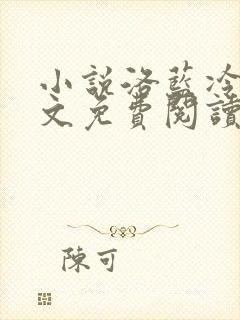 小說洛藍冷
文免費閱讀
陳可